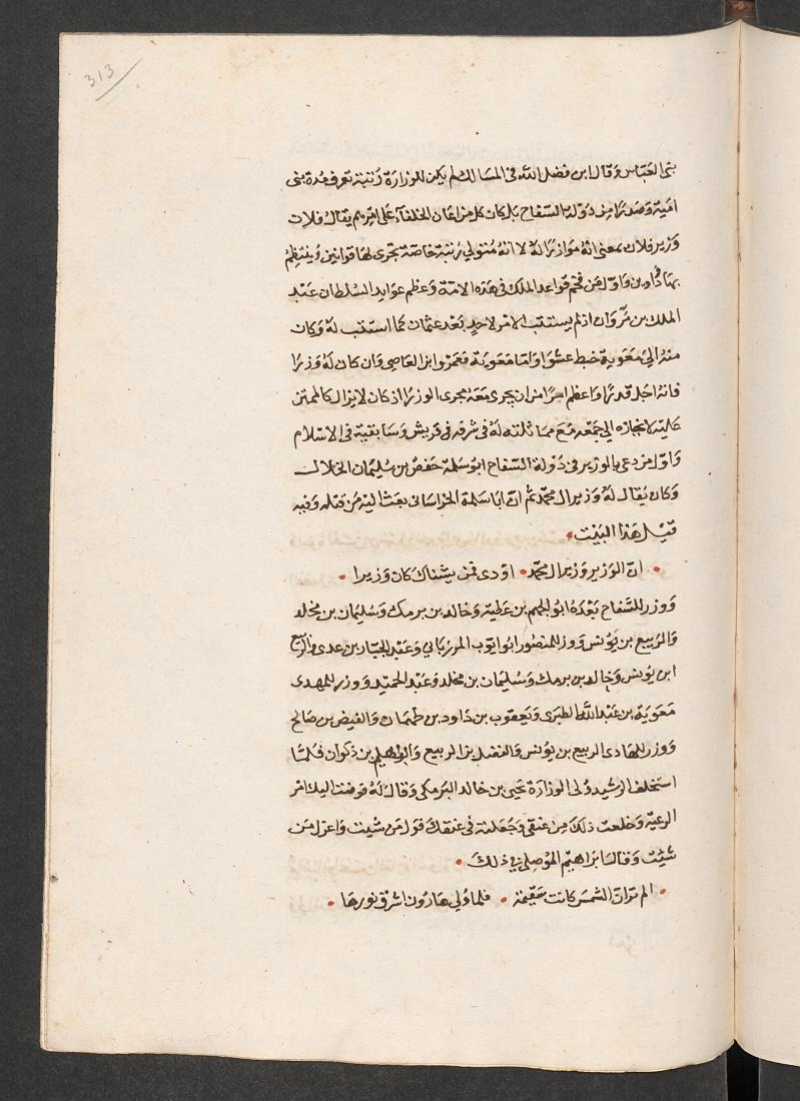 313
بنى العباس وقال ابن فضل الله فى المسالك لم يكن للوزارة رتبة تعرف مدة بنى
امية وصدرا من دولة السفاح بل كان كل من اعان الخلفآء على امرهم يقال فلان
وزير فلان بمعنى انه موازرا له لا انه متولي رتبة خاصة تجرى لها قوانين وينتظم
بها دواوين واول من فخم قواعد الملك فى هذه الامة وعظم عوايد السلطان عبد
الملك بن مروان اذ لم يستتب الامر لاحد بعد عثمان كما استتب له وكان
منه الى معوية خبط عشوا واما معوية فعمرو ابن العاصى وان كان له وزيرا
فانه اجل قدرا واعظم امرا من ان يجرى معه مجرى الوزير اذ كان لايزال كالممتن
عليه بانحيازه الى جمعه مع مماثلته له فى شرفه فى قريش وسابقية فى الاسلام
واول من دعى بالوزير فى دولة السفاح ابو سلمة حفص بن سليمان الخلال
وكان يقال له وزير ال محمد ثم ان ابا سلمة الخراسانى بعث اليه من قتله وفيه
قيل هذا البيت
ان الوزير وزير ال محمد اودى فمن يشناك كان وزيرا
ووزر للسفاح بعده ابو الجهم بن عطية وخالد بن برمك وسليمان بن مخلد
والربيع بن يونس ووزر للمنصور ابو ايوب المورياني وعبد الجبار بن عدى والربيع
ابن يونس وخالد بن برمك وسليمان بن مخلد وعبد الحميد ووزر للمهدى
معوية بن عبد الله الطبرى ويعقوب بن داود بن طهمان والفيض بن صالح
ووزر للهادى الربيع بن يونس والفضل بن الربيع وابراهيم بن ذكوان فلما
استخلف الرشيد ولى الوزارة يحيى بن خالد البرمكى وقال له فوضت اليك امر
الرعيه وخلعت ذلك من عنقى وجعلته فى عنقك فول من شيت واعزل من
شيت وقال ابراهيم الموصلي في ذلك
الم تر ان الشمس كانت سقيمة فلما ولي هارون اشرق نورها